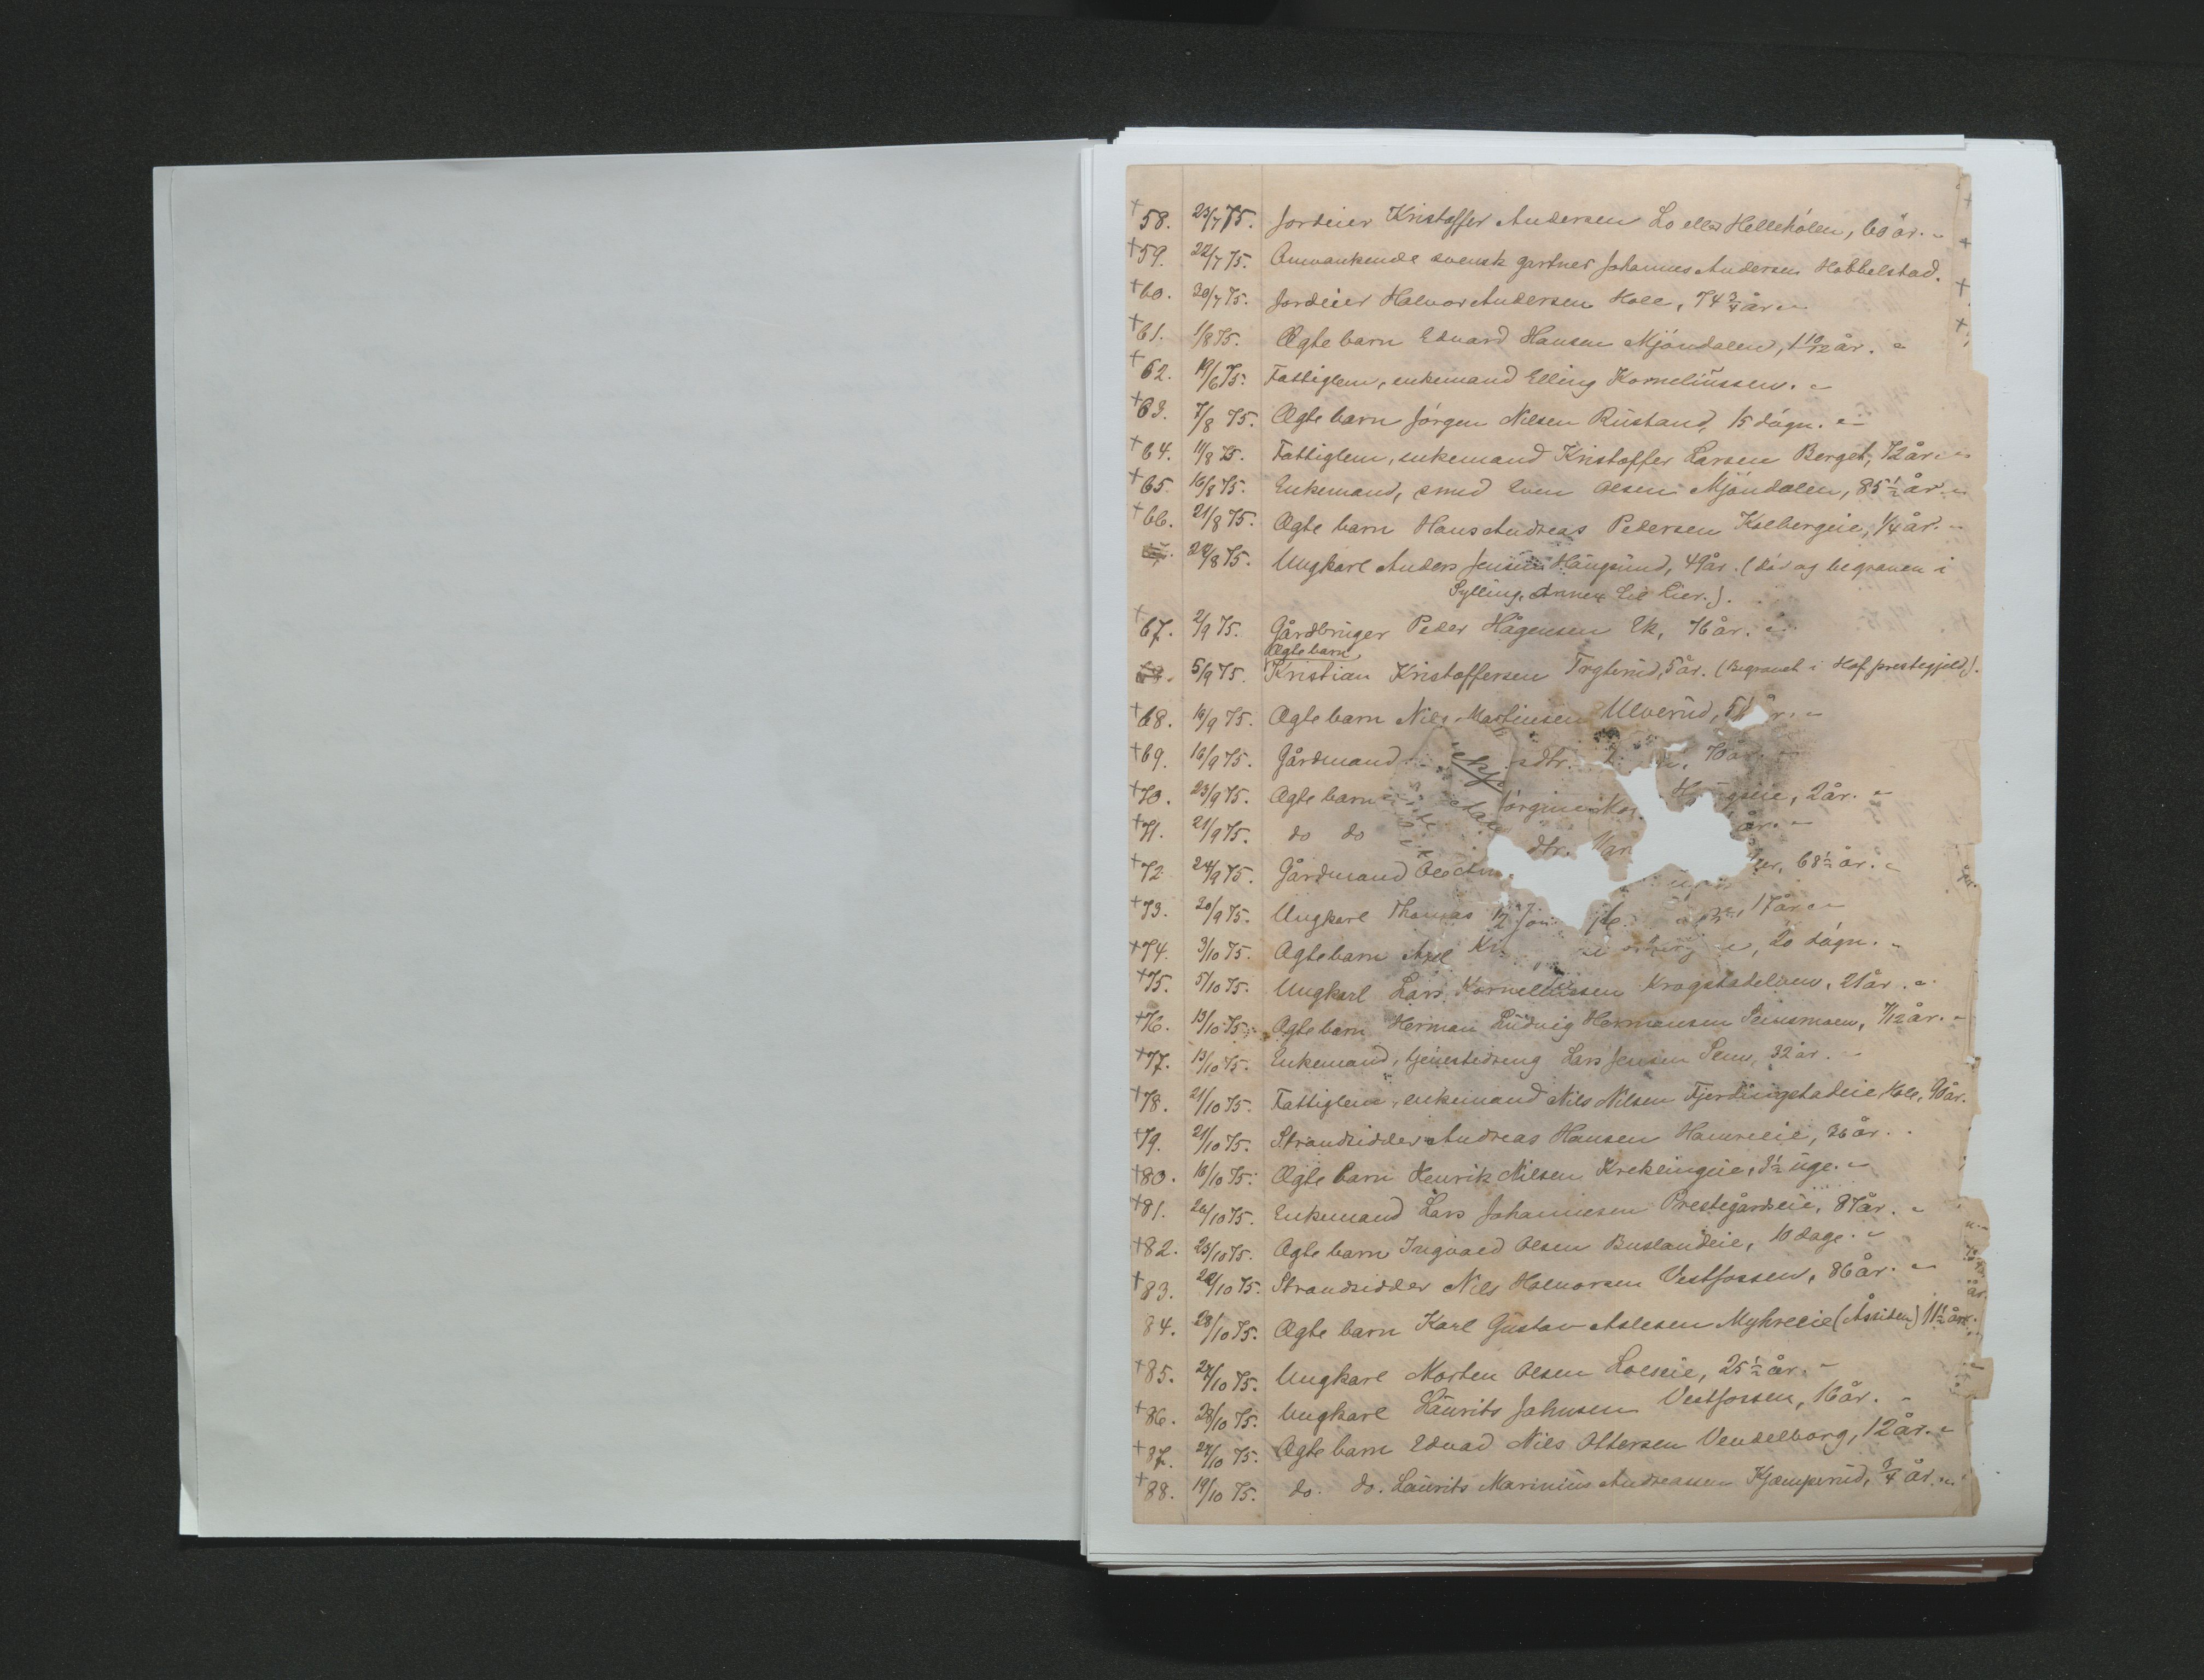 +58. 23/7 75. Jordeier Kristoffer Andersen Lo eller Hellehólen, 60 år. -
+59. 22/7 75. Omvankende svensk gartner Johannes Andersen Hobbelstad.
+60. 30/7 75. Jordeier Halvor Andersen Hole, 74 3/4 år. -
+61. 1/8 75. Ægte barn Edvard Hansen Mjóndalen, 1 10/12 år. -
+62. 19/6 75. Fattiglem, enkemand Elling Korneliussen. -
+63. 7/8 75. Ægte barn Jórgen Nilsen Rustand, 15 dógn. -
+64. 11/8 75. Fattiglem, enkemand Kristoffer Larsen Berget, 72 år. -
+65. 16/8 75. Enkemand, smed Even Olsen Mjóndalen, 85 1/2 år. -
+66. 21/8 75. Ægte barn Hans Andreas Pedersen Kolbergeie, 1/4 år. -
22/8 75. Ungkarl Anders Jensen Haugsund, 49 år. (dód og begraven i
Sylling, Annex til Lier.).
+67. 2/9 75. Gårdbruger Peder Hågensen Ek, 76 år. -
Ægte barn
5/9 75. Kristian Kristoffersen Tryterud, 5 år. (Begravet i Hof prestegjeld).
+68. 16/9 75. Ægte barn Nils Martinsen Ulverud,
+69. 16/9 75. Gårdmand dtr. 70 år. -
+70. 23/9 75. Ægte barn Jórgine 2 år. -
+71. 21/9 75. do do dtr. år. -
+72. 24/9 75. Gårdmand Ole 68 1/2 år. -
+73. 20/9 75. Ungkarl Thomas 17 år. -
+74. 3/10 75. Ægte barn Axel 20 dógn. -
+75. 5/10 75. Ungkarl Lars Korneliussen Krogstadelven, 21 år. -
+76. 13/10 75. Ægte barn Herman Ludvig Hermansen Teinsmoen, 7/12 år. -
+77. 13/10 75. Enkemand, tjenestedreng Lars Jensen Sem, 32 år. -
+78. 21/10 75. Fattiglem, enkemand Nils Nilsen Fjerdingstadeie, Hole, 90 år.
+79. 21/10 75. Strandsidder Andreas Hansen Hamreeie, 36 år. -
+80. 16/10 75. Ægte barn Henrik Nilsen Kreklingeie, 3 1/2 uge. -
+81. 26/10 75. Enkemand Lars Johannesen Prestegårdseie, 87 år. -
+82. 23/10 75. Ægte barn Ingvald Olsen Buslandeie, 10 dage. -
+83. 22/10 75. Strandsidder Nils Halvorsen Vestfossen, 86 år. -
84. 28/10 75. Ægte barn Karl Gustav Aslesen Myhreeie (Åssiden) 11 1/2 år.
+85. 27/10 75. Ungkarl Morten Olsen Loeseie, 25 1/2 år. -
+86. 28/10 75. Ungkarl Laurits Johnsen Vestfossen, 16 år. -
+87. 27/10 75. Ægte barn Edvad Nils Ottersen Vendelborg, 12 år. -
+88. 19/10 75. do. do. Laurits Marinius Andreassen Kjæmperud, 3/4 år. -